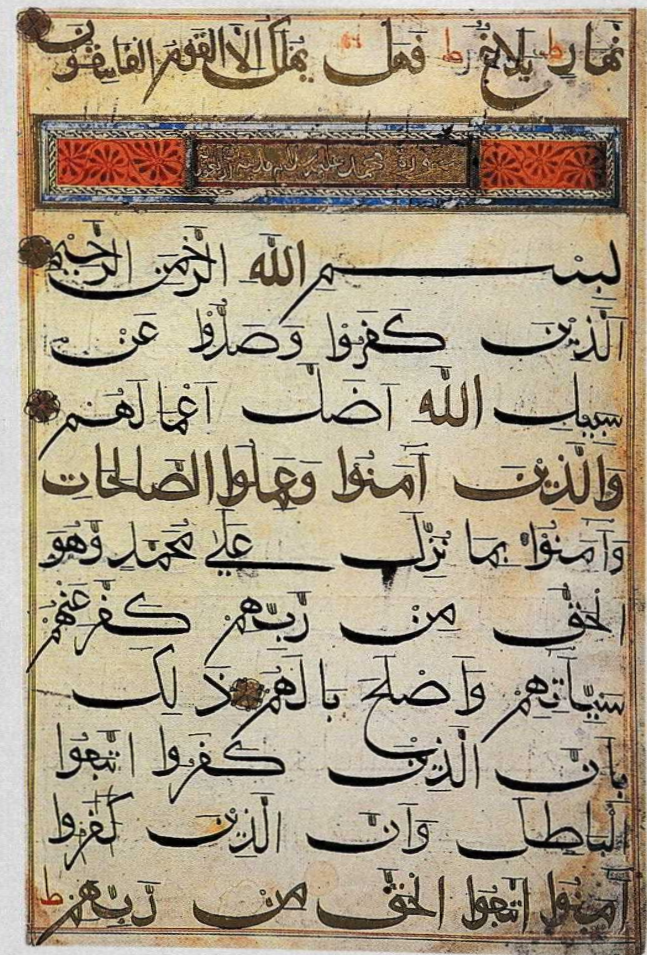 نَهارٍ ط بَلاغٌ ط فهل يهلك الا القوم الفاسقون
سورة محمد عليه السلم مدنية
بسم الله الرَّحْمن الرَّحيم
الَّذيْنَ كَفَرُوْا وَصَدُّوْا عَنْ
سبيل الله اَضَلَّ اَعْمالَهُمْ
وَالَّذِيْنَ آمَنُوْا وَعَمِلُوا الصّالحات
وَآمَنُوْا بما نُزِّلَ عَليٰ مُحَمَّدٍ وَّهُوَ
الْحَقُّ مِنْ رَّبِّهِمْ كَفَّرَ عَنْهُمْ
سَيِّآتِهِمْ وَاَصْلَحَ بَالَهُمْ ذَلِكَ
بِاَنَّ الَّذِيْنَ كَفَرُوا اتَّبَعُوا
الْبَاطِلَ وَاَنَّ الَّذِيْنَ كَفَرُوا
آمَنُوا اتَّبَعُوا الْحَقَّ مِنْ رَّبِّهِمْ ط